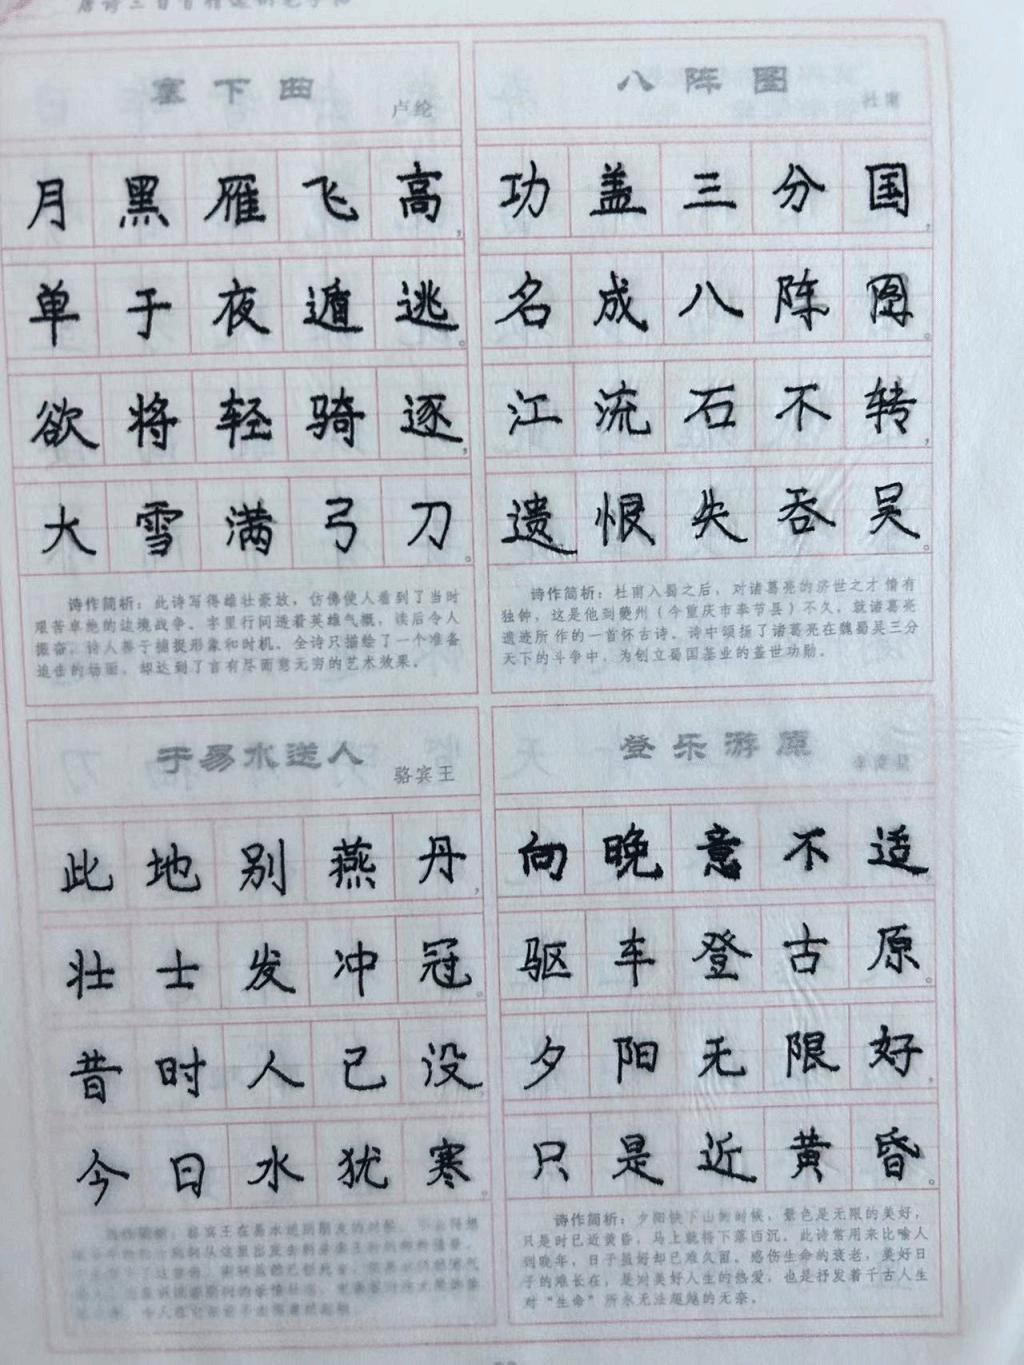 塞下曲
卢纶
月黑雁飞高，
单于夜遁逃。
欲将轻骑逐，
大雪满弓刀。
诗作简析：此诗写得雄壮豪放，仿佛使人看到了当时
艰苦卓绝的边境战争。字里行间透着英雄气概，读后令人
振奋。诗人善于捕捉形象和时机。全诗只描绘了一个准备
追击的场面，却达到了言有尽而意无穷的艺术效果。
八阵图
杜甫
功盖三分国，
名成八阵图。
江流石不转，
遗恨失吞吴。
诗作简析：杜甫入蜀之后，对诸葛亮的济世之才情有
独钟，这是他到夔州（今重庆市奉节县）不久，就诸葛亮
遗迹所作的一首怀古诗。诗中颂扬了诸葛亮在魏蜀吴三分
天下的斗争中，为创立蜀国基业的盖世功勋。
于易水送人
骆宾王
此地别燕丹，
壮士发冲冠。
昔时人已没，
今日水犹寒。
登乐游原
向晚意不适，
驱车登古原。
夕阳无限好，
只是近黄昏。
诗作简析：夕阳快下山的时候，景色是无限的美好，
只是时已近黄昏，马上就将下落西沉。此诗常用来比喻人
到晚年，日子虽好却已难久留。感伤生命的衰老，美好日
子的难长在，是对美好人生的热爱，也是抒发着千古人生
对“生命”所永无法超越的无奈。